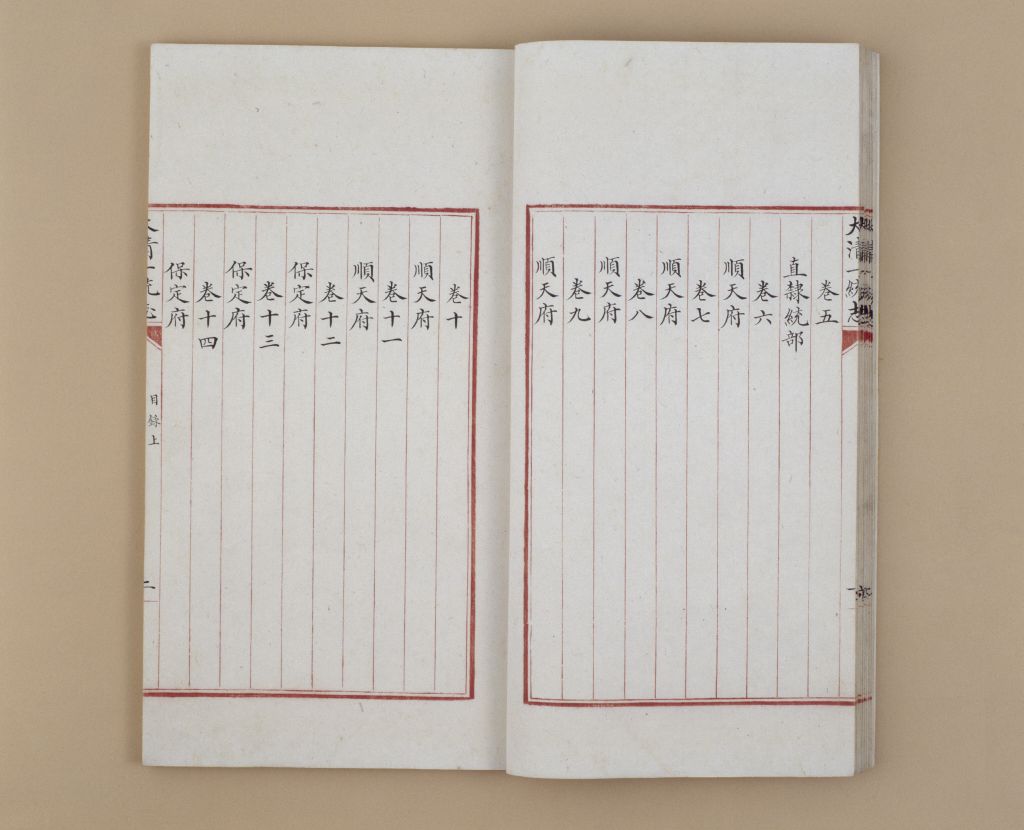 大清一統志
卷五
直隸統部
卷六
順天府
卷七
順天府
卷八
順天府
卷九
順天府
卷十
順天府
卷十一
順天府
卷十二
保定府
卷十三
保定府
卷十四
保定府
大清一統志
目錄上
二